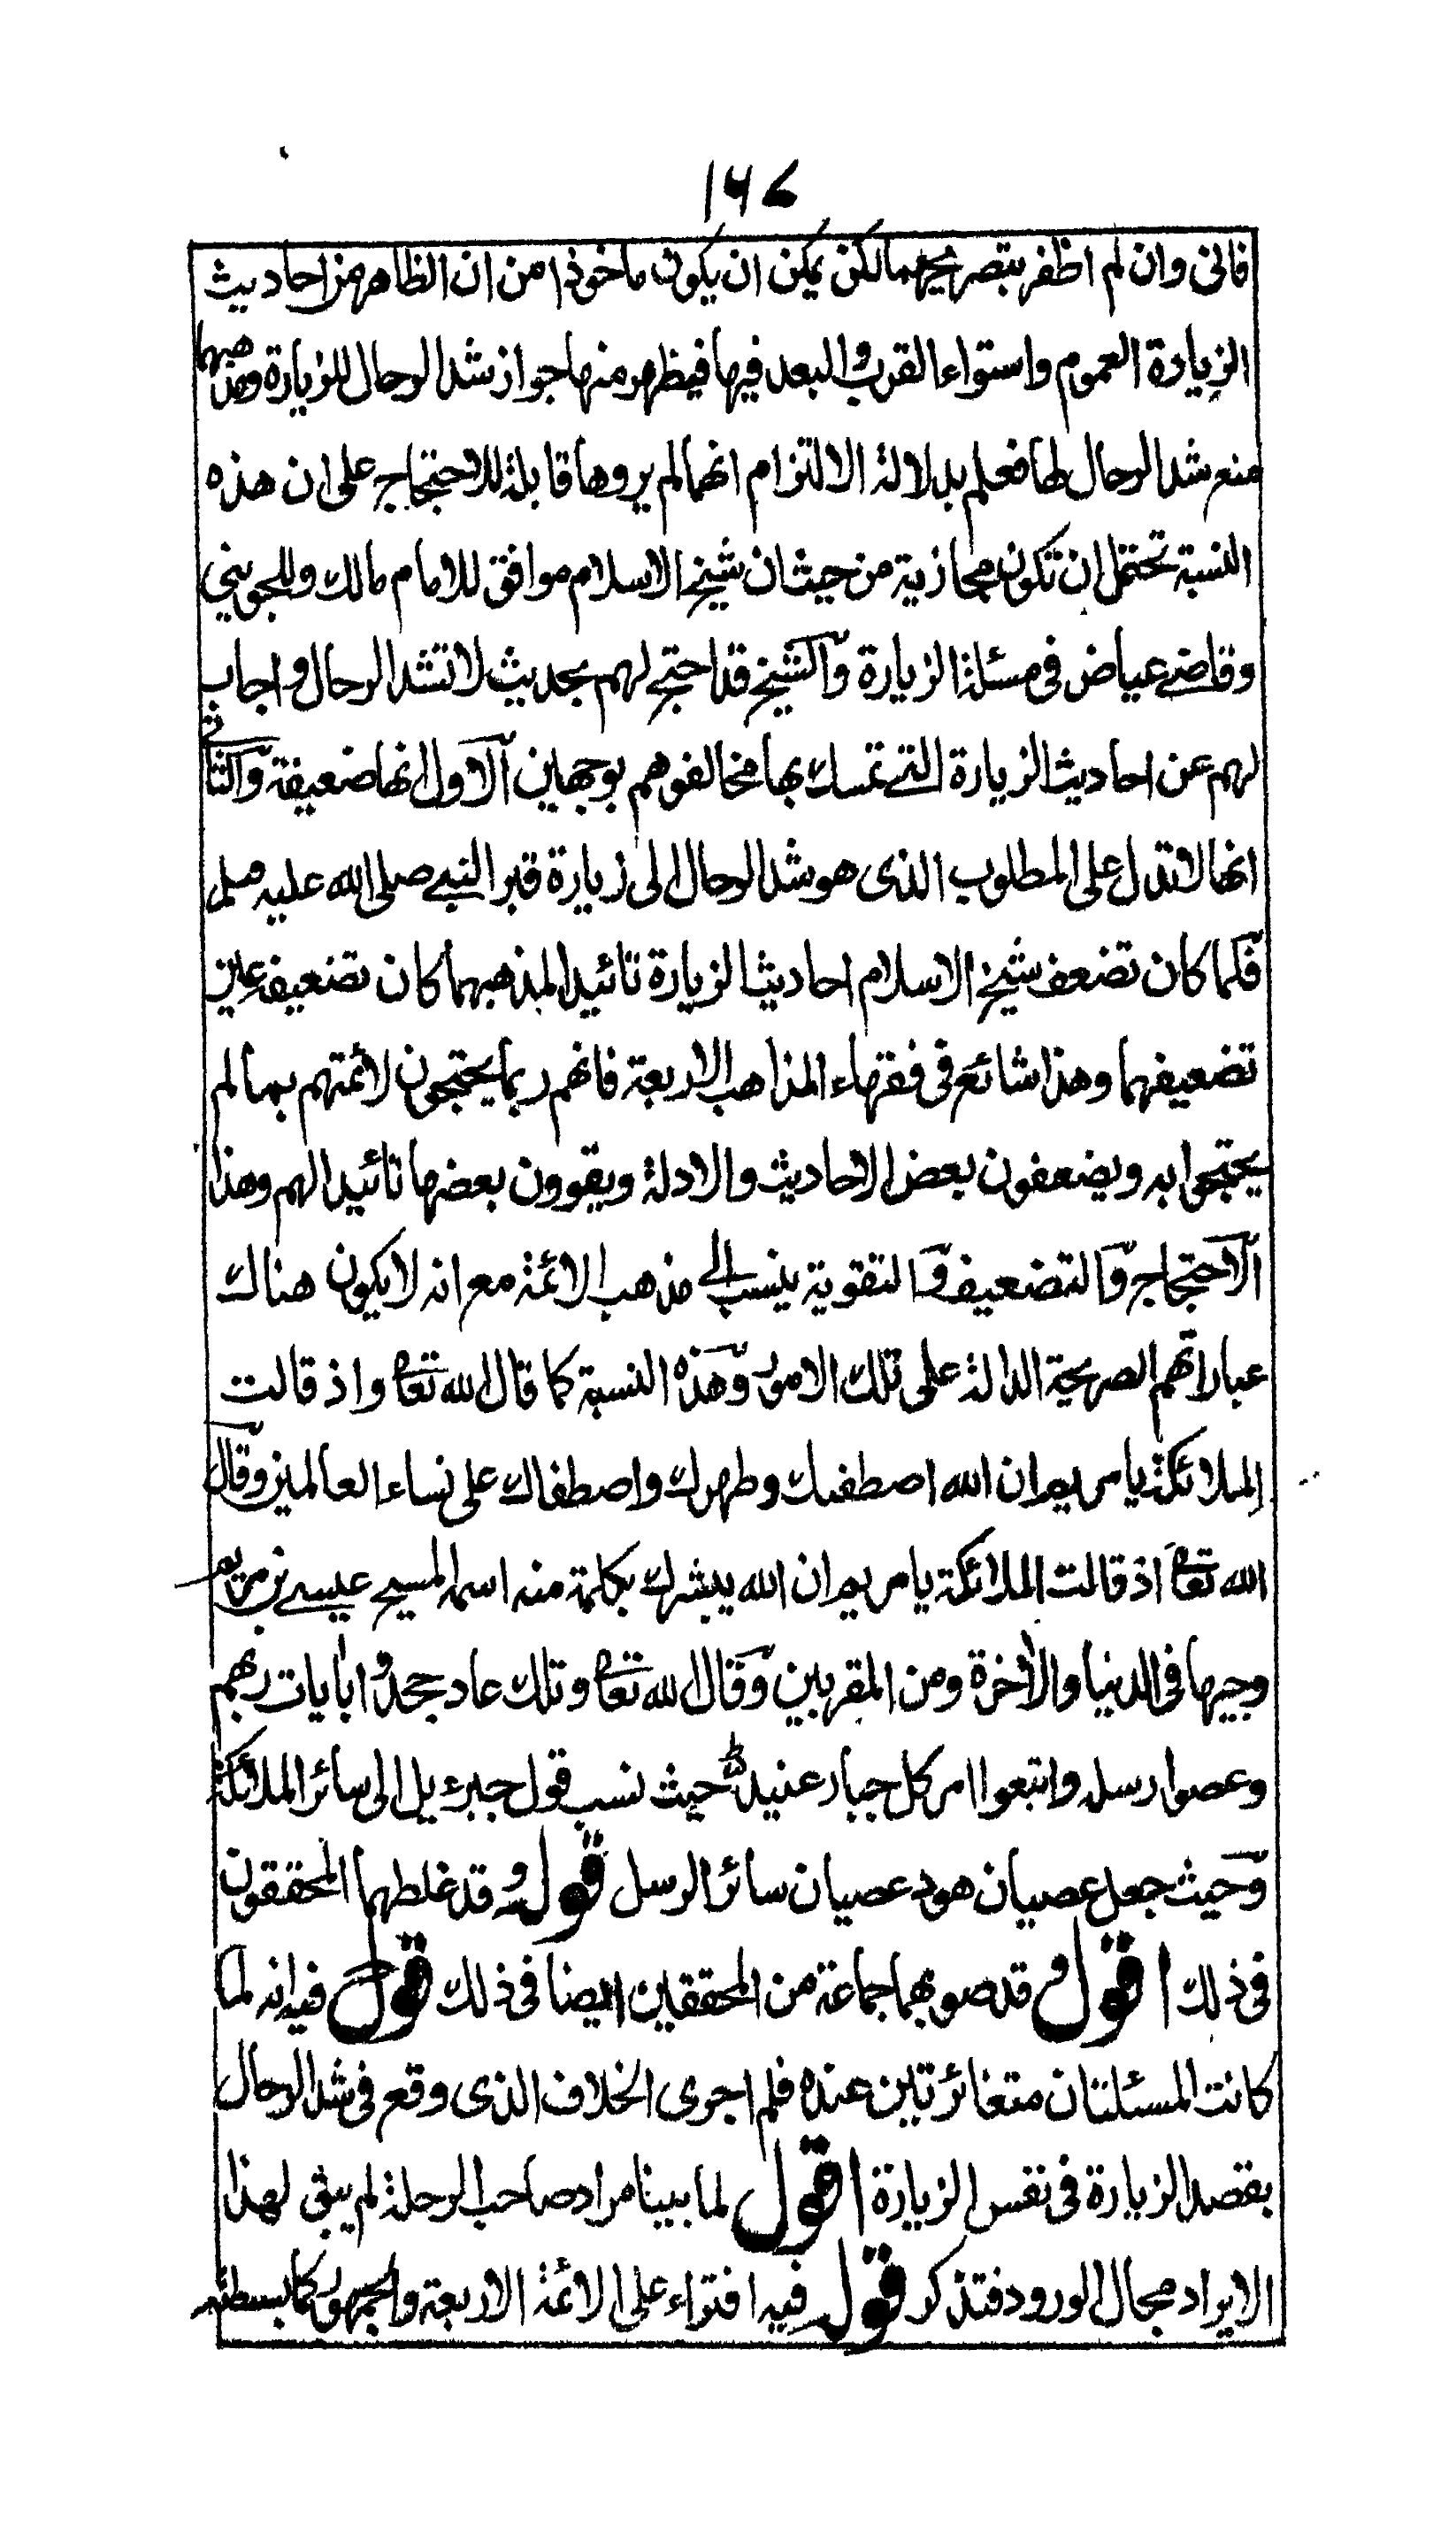 ۱۶۷
فانى وان لم اظفر بتصريحهما لكن يمكن ان يكون ماخوذا من ان الظاهر من احاديث
الزيارة العموم واستواء القرب والبعد فيها فيظهر منها جواز شد الرحال للزيارة ومذهبهما
منع شد الرحال لها فعلم بدلالة الالتزام انهما لم يروها قابلة للاحتجاج على ان هذه
النسبة تحتمل ان تكون مجازية من حيث ان شيخ الاسلام موافق للامام مالك وللجويني
وقاضے عياض فى مسئلة الزيارة والشيخ قد احتج لهم بحديث لا تشد الرحال واجاب
لهم عن احاديث الزيارة التے تمسك بها مخالفوهم بوجهين الاول انها ضعيفة والثانے
انها لا تدل على المطلوب الذى هو شد الرحال الى زيارة قبر النبے صلى الله عليه وسلم
فكما كان تضعف شيخ الاسلام احاديث الزيارة تائيدا لمذهبهما كان تضعيفه عين
تضعيفهما وهذا شائع فى فقهاء المذاهب الاربعة فانهم ربما يحتجون لائمتهم بما لم
يحتجوا به ويضعفون بعض الاحاديث والادلة ويقوون بعضها تائيدا لهم وهذا
الاحتجاج والتضعيف والتقوية ينسب الے مذهب الائمة مع انه لا يكون هناك
عباراتهم الصريحة الدالة على تلك الامور وهذه النسبة كما قال الله تعالى واذ قالت
الملائكة يا مريم ان الله اصطفىك وطهرك واصطفاك على نساء العالمين وقال
الله تعالى اذ قالت الملائكة يا مريم ان الله يبشرك بكلمة منه اسمه المسيح عيسے بن مريم
وجيها فى الدنيا والاٰخرة ومن المقربين وقال الله تعالى وتلك عاد جحدوا باٰيات ربهم
وعصوا رسله واتبعوا امر كل جبار عنيد حيث نسب قول جبرءيل الى سائر الملائكة
وحيث جعل عصيان هود عصيان سائر الرسل قوله وقد غلطهما المحققون
فى ذلك اقول قد صوبهما جماعة من المحققين ايضا فى ذلك قوله فيه انه لما
كانت المسئلتان متغائرتين عنده فلم اجرى الخلاف الذى وقع فى شد الرحال
بقصد الزيارة فى نفس الزيارة اقول لما بينا مراد صاحب الرحلة لم يبق لهذا
الايراد مجال الورود فتذكر قوله فيه افتراء على الائمة الاربعة والجمهور كما بسطته